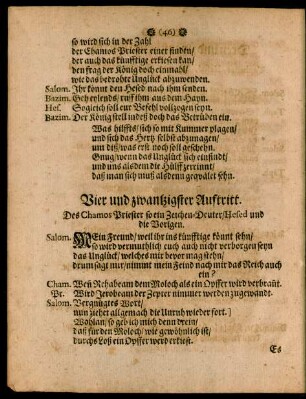 (46)
so wird sich in der Zahl
der Chamos Priester einer finden/
der auch das künfftige erkiesen kan/
den frag der König doch einmahl/
wie das bedrohte Unglück abzuwenden.
Salom. Ihr könnt den Hesed nach ihm senden.
Bazim. Geh eylends/ ruff ihm aus dem Hayn.
Hes. Sogleich soll eur Befehl vollzogen seyn.
Bazim. Der König stell indeß doch das Betrüben ein.
Was hilffts/ sich so mit Kummer plagen/
und sich das Hertz selbst abznagen/
um diß/ was erst noch soll geschehn.
Gnug/ wenn das Unglück sich einfindt/
und uns alsdenn die Hülff zerrinnt/
daß man sich muß alsdenn gequält sehn.
Vier und zwantzigster Auftritt.
Des Chamos Priester so ein Zeichen-Deuter/ Hesed und
die Vorigen.
Salom. MEin Freund/ weil ihr ins künfftige könnt sehn/
so wird vermuthlich euch auch nicht verborgen seyn
das Unglück/ welches mir bevor mag stehn/
drum sagt nur/ nimmt mein Feind nach mir das Reich auch
ein?
Cham. Wen Rehabeam dem Moloch als ein Opffer wird verbrañt.
Pr. Wird Jerobeam der Zepter nimmer werden zugewandt.
Salom. Vergnügtes Wort/
nun ziehet allgemach die Unruh wieder fort.
Wohlan/ so geb ich mich denn drein/
daß für den Moloch/ wie gewöhnlich ist/
durchs Loß ein Opffer werd erkiest.
Es